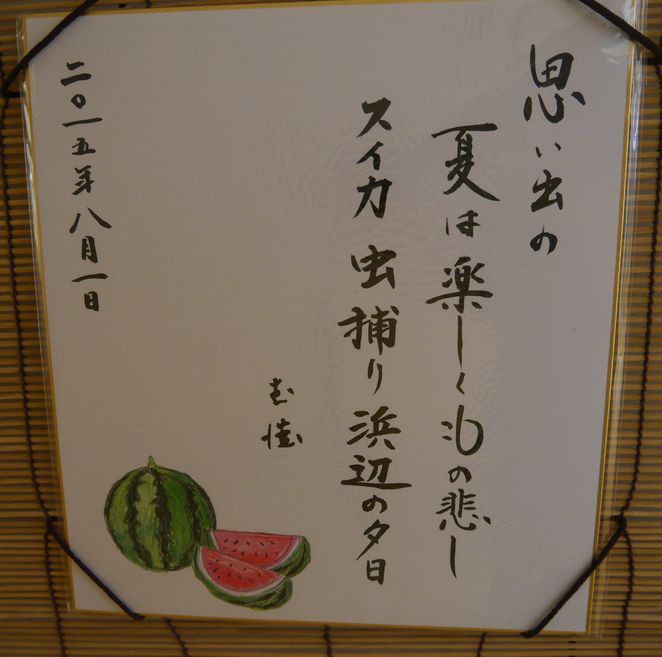 思い出の
夏は楽しくもの悲し
スイカ 虫捕り 浜辺の夕日
二〇一五年 八月一日